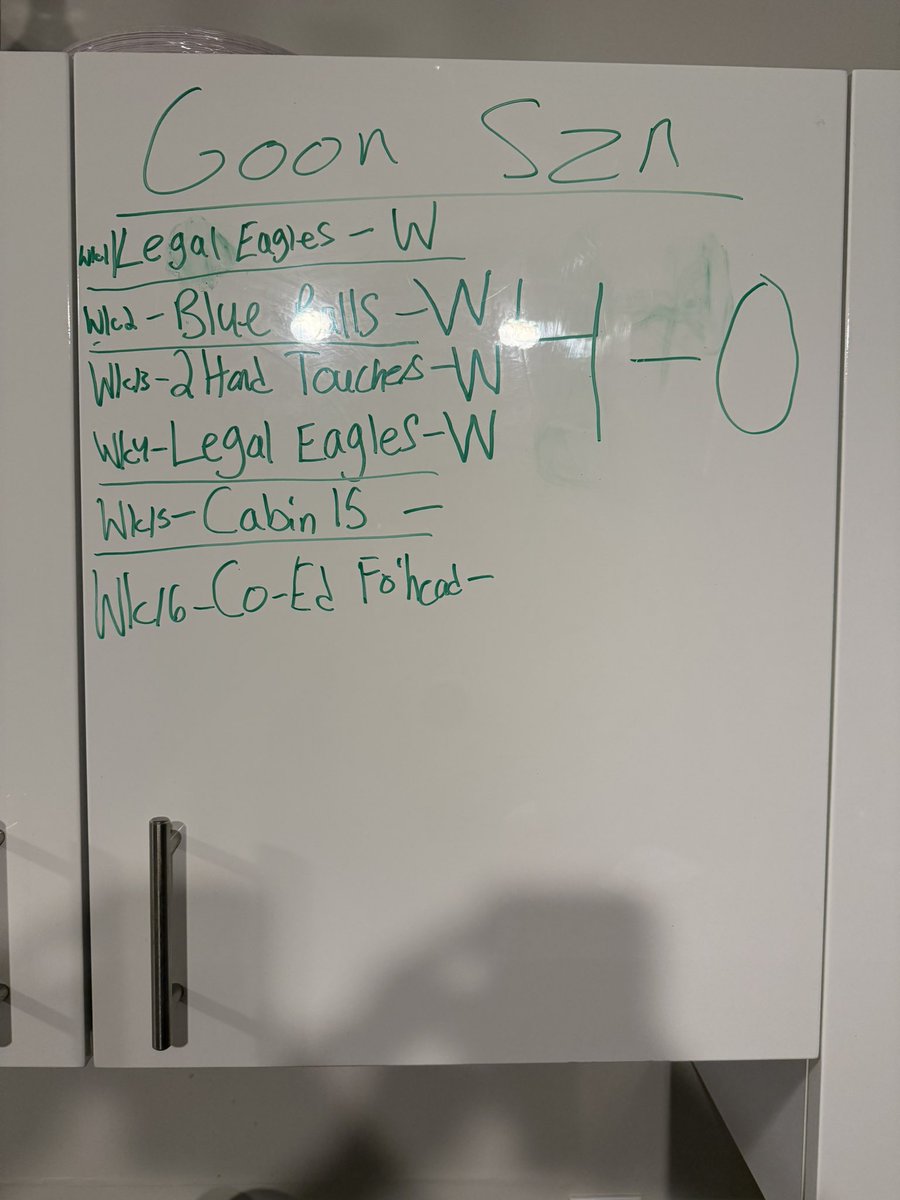 Goon Szn
Wk1 Legal Eagles - W
Wk2 - Blue Balls - W
Wk3 - 2 Hand Touchers - W
Wk4 - Legal Eagles - W
Wk5 - Cabin 15 -
Wk6 - Co-Ed Fo'head -
4 - 0